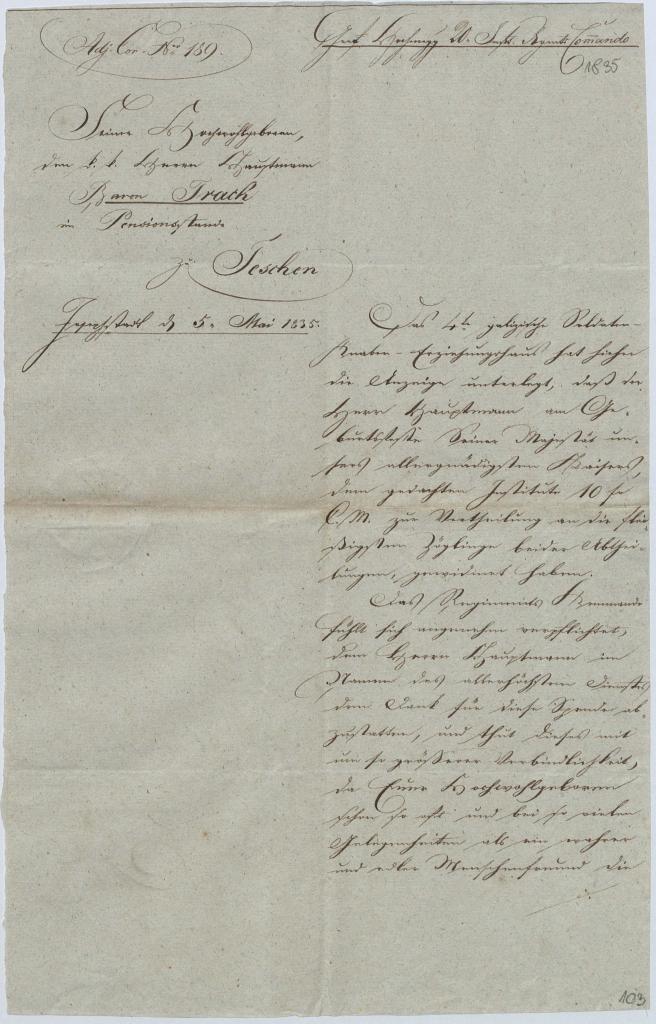 Adj. Cor. Nro 189.
Graf Hochenegg 20. Inft. Regmts Commando
1835
Seiner Hochwohlgeboren,
dem k. k. Herrn Hauptmann
Baron Trach
im Pensionsstande
zu Teschen
Josephstadt d 5. Mai 1835.
Das 4te galizische Soldaten-
Knaben-Erziehungshaus hat hieher
die Anzeige unterlegt, daß der
Herr Hauptmann am Ge-
burtsfeste Seiner Majestät un-
sers allergnädigsten Kaisers,
dem gedachten Institute 10 fr
C.M. zur Vertheilung an die flei-
ßigsten Zöglinge beider Abthei-
lungen, gewidmet haben.
Das Regiments Kommando
fühlt sich angenehm verpflichtet,
dem Herrn Hauptmann im
Namen des allerhöchsten Dienstes
den Dank für diese Spende ab-
zustatten, und thut dieses mit
um so größerer Verbindlichkeit,
da Euer Hochwohlgeboren
schon so oft und bei so vielen
Gelegenheiten als ein wahrer
und edler Menschenfreund die
103